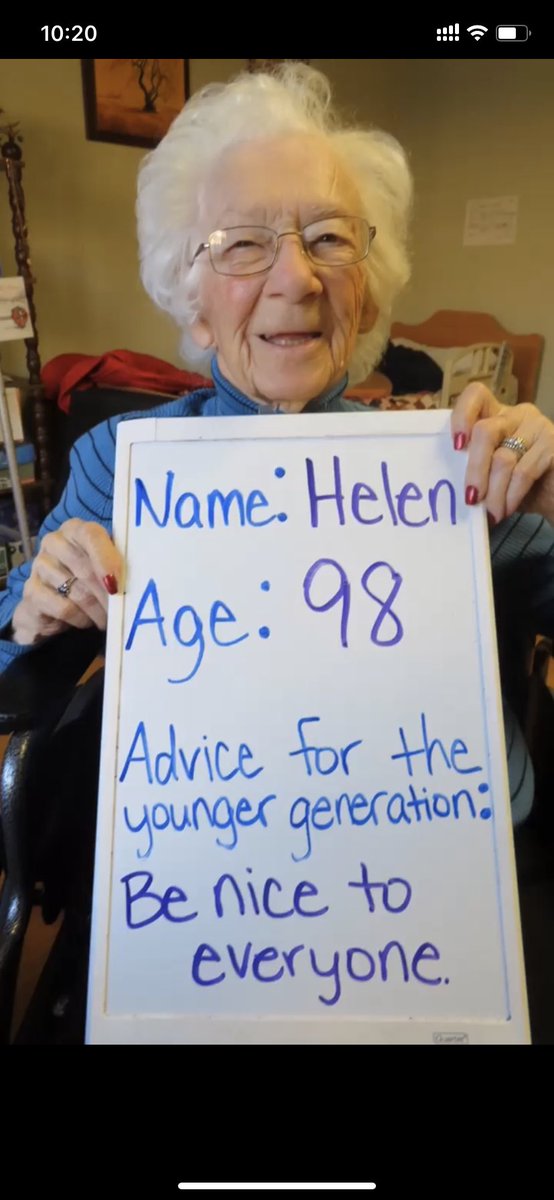 10:20
Name: Helen
Age: 98
Advice for the
younger generation:
Be nice to
everyone.
Quartet